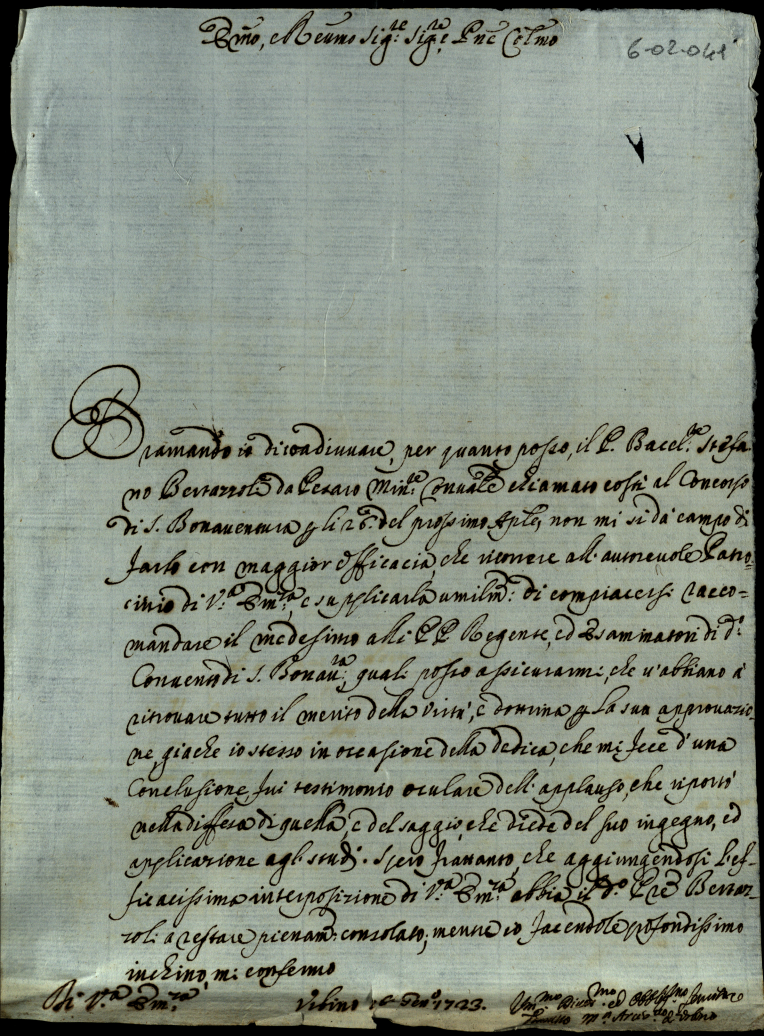 Emo, e Reumo Sig:re Sig:re Pne Colmo
6-02-041
Bramando io di coadiuuare, per quanto posso, il P. Baccl:re Stefa-
no Bertazzoli da Pesaro Min:re Conuale chiamato costì al Concorso
di S. Bonauentura p li 26. del prossimo Aple, non mi si dà campo di
farlo con maggior efficacia, che ricorrere all'autoreuole Patro-
cinio di V:a Em:za, e supplicarla umilm: di compiacersi racco-
mandare il medesimo alli PP. Regente, ed Esaminatori di d:o
Conuento di S. Bonau:ra, quali posso assicurarmi, che u'abbiano à
ritrouare tutto il merito della Virtù, e dottrina p la sua approuazio-
ne, giache io stesso in occasione della dedica, che mi fece d'una
Conclusione fui testimonio oculare dell'applauso, che riportò
nella diffesa di quella, e del saggio, che diede del suo ingegno, ed
applicazione agli studj. Spero frattanto che aggiungendosi l'ef-
ficacissima interposizione di V:a Em:za abbia il d:o Pre Bertaz-
zoli à restare pienam: consolato; mentre io facendole profondissimo
inchino, mi confermo
Di V:a Em:za Vrbino Gen:o 1723. Um:mo Diu:mo ed Obblig:mo Seruitore
m:a Arciu: d'Vrbino